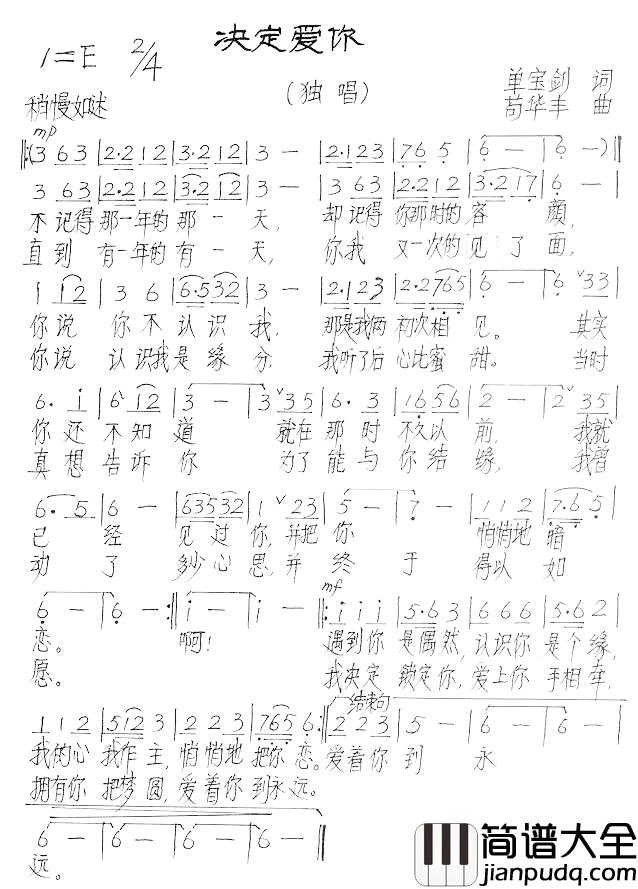 决定爱你
1=E 2/4
(独唱)
单宝剑 词
苟华丰 曲
稍慢如述
mp
‖:(3 63 | 2·2 12 | 3·2 12 | 3 — | 2·1 23 | 76 5 | 6 — | 6 —)‖
3 63 | 2·2 12 | 3·2 12 | 3 — | 3 63 | 2·2 12 | 3·2 17 | 6 —
不记得那一年的那一天, 却记得你那时的容颜,
直到有一年的有一天, 你我又一次的见了面,
1 12 | 3 6 | 6·5 32 | 3 — | 2·1 23 | 2·2 765 | 6 — | 6 ˅33
你说你不认识我, 那是我俩初次相见。其实
你说认识我是缘分, 我听了后心比蜜甜。当时
6· i | 6 ˅12 | 3 — | 3 ˅35 | 6· 3 | 16 56 | 2 — | 2 ˅35
你还不知道 就在那时不久以前, 我就
真想告诉你 为了能与你结缘, 我曾
6· 5 | 6 — | 635 32 | 1 ˅23 | 5 — | 7 — | 11 2 | 7·6 5
已经见过你, 并把你 悄悄地暗
动了多少心思, 并终于 得以如
6 — | 6 — :‖ i — | i — ‖: i i i | 5·6 3 | 66 6 | 5·6 2
mf
恋。 啊! 遇到你是偶然, 认识你是个缘,
愿。 我决定锁定你, 爱上你手相牵,
结束句
11 2 | 512 3 | 22 3 | 765 6 :‖ 22 3 | 5 — | 6 — | 6 —
我的心我作主, 悄悄地把你恋。爱着你到永
拥有你把梦圆, 爱着你到永远。
6 — | 6 — | 6 — | 6 — ‖
远。
简谱大全
jianpudq.com